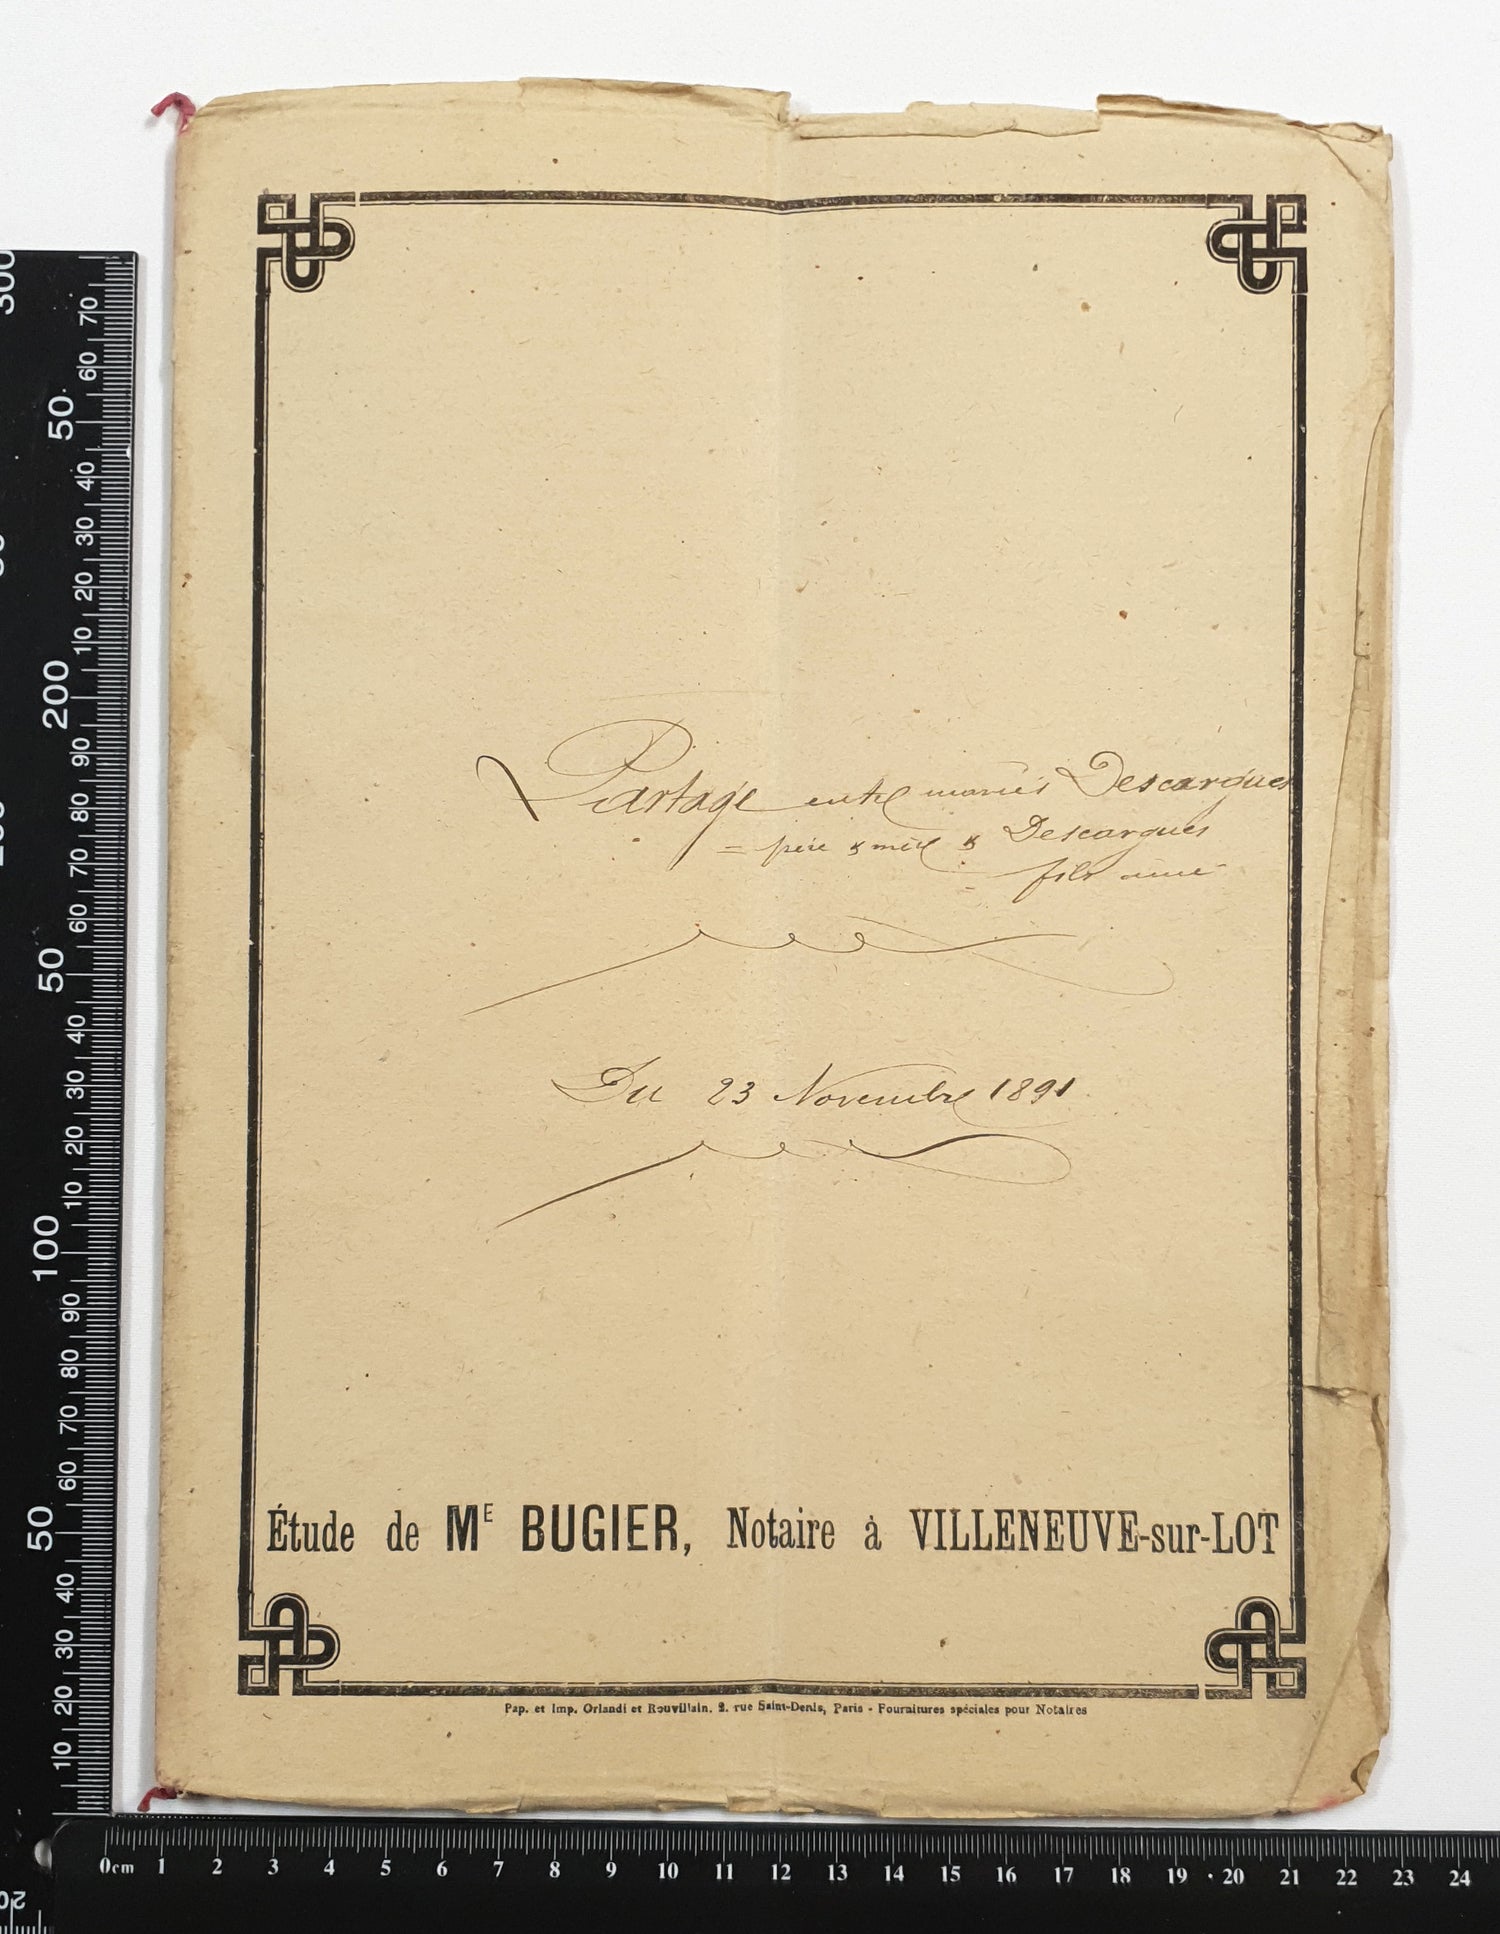 Partage entre mariés Descargues
= père & mère & Descargues
fils ainé
Du 23 Novembre 1891
Étude de ME BUGIER, Notaire à VILLENEUVE-sur-LOT
Pap. et Imp. Orlandi et Rouvillain. 2. rue Saint-Denis, Paris - Fournitures spéciales pour Notaires
300
70
60
50
40
30
20
10
200
90
80
70
60
50
40
30
20
10
100
90
80
70
60
50
40
30
20
10
0cm 1 2 3 4 5 6 7 8 9 10 11 12 13 14 15 16 17 18 19 20 21 22 23 24
20